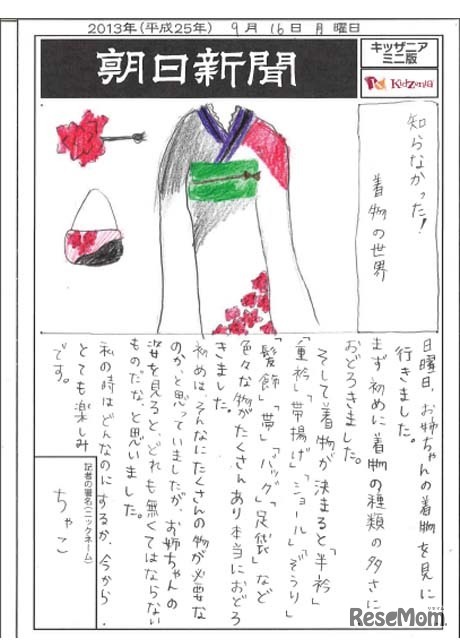 2013年(平成25年) 9月16日月曜日
朝日新聞
キッザニア
ミニ版
KidZania
知らなかった!
着物の世界
日曜日、お姉ちゃんの着物を見に
行きました。
まず初めに着物の種類の多さに
おどろきました。
そして着物が決まると「半衿」
「重衿」「帯揚げ」「ショール」「ぞうり」
「髪飾」「帯」「バッグ」「足袋」など
色々な物がたくさんあり本当におどろ
きました。
初めは、そんなにたくさんの物が必要な
のかと思っていましたが、お姉ちゃんの
姿を見ると、どれも無くてはならない
ものだな、と思いました。
私の時はどんなのにするか、今から、
とても楽しみ
です。
記者の署名(ニックネーム)
ちゃこ
リセマム
ReseMom.